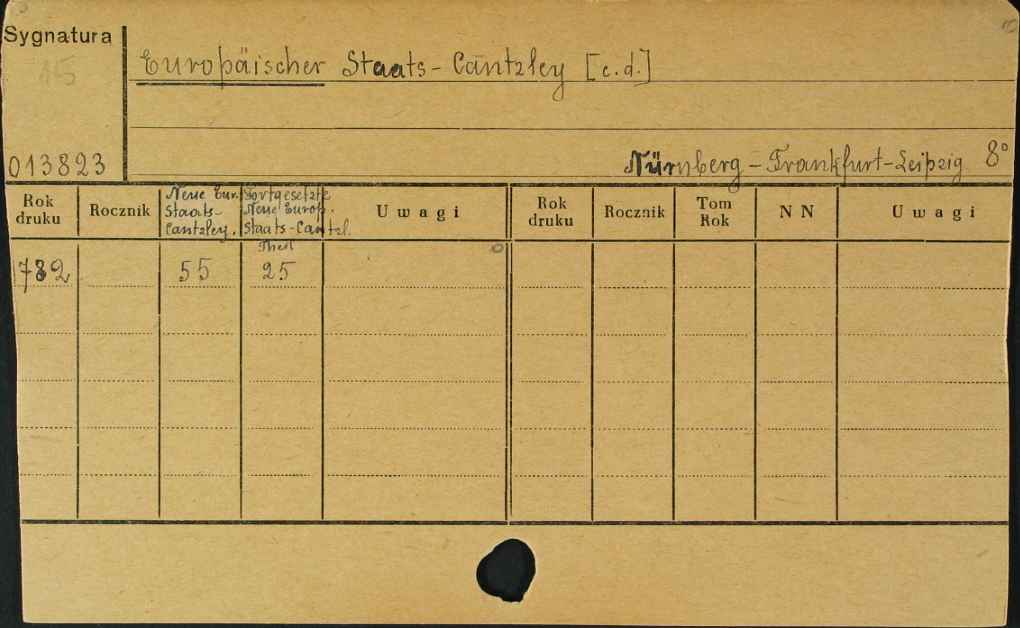 Sygnatura
Europäischer Staats-Cantzley [c.d.]
15
013823
Nürnberg - Frankfurt - Leipzig 8°
Rok druku
Rocznik
Neue Eur. Staats- Cantzley.
Fortgesetzte Neue Europ. Staats-Cantzl.
Uwagi
Rok druku
Rocznik
Tom Rok
NN
Uwagi
Theil
1782 55 25